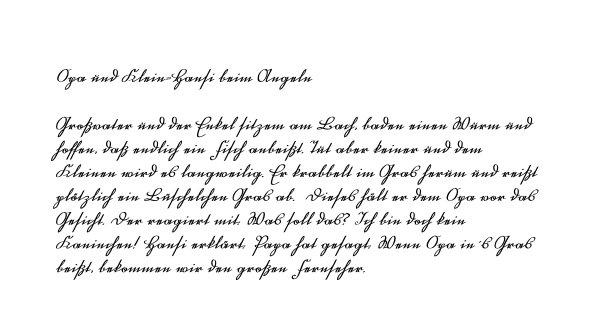 Opa und Klein-Hansi beim Angeln
Großvater und der Enkel sitzem am Bach, baden einen Wurm und
hoffen, daß endlich ein Fisch anbeißt. Tut aber keiner und dem
Kleinen wird es langweilig. Er krabbelt im Gras herum und reißt
plötzlich ein Büschelchen Gras ab. Dieses hält er dem Opa vor das
Gesicht. Der reagiert mit. Was soll das? Ich bin doch kein
Kaninchen! Hansi erklärt. Papa hat gesagt. Wenn Opa in´s Gras
beißt, bekommen wir den großen Fernseher.